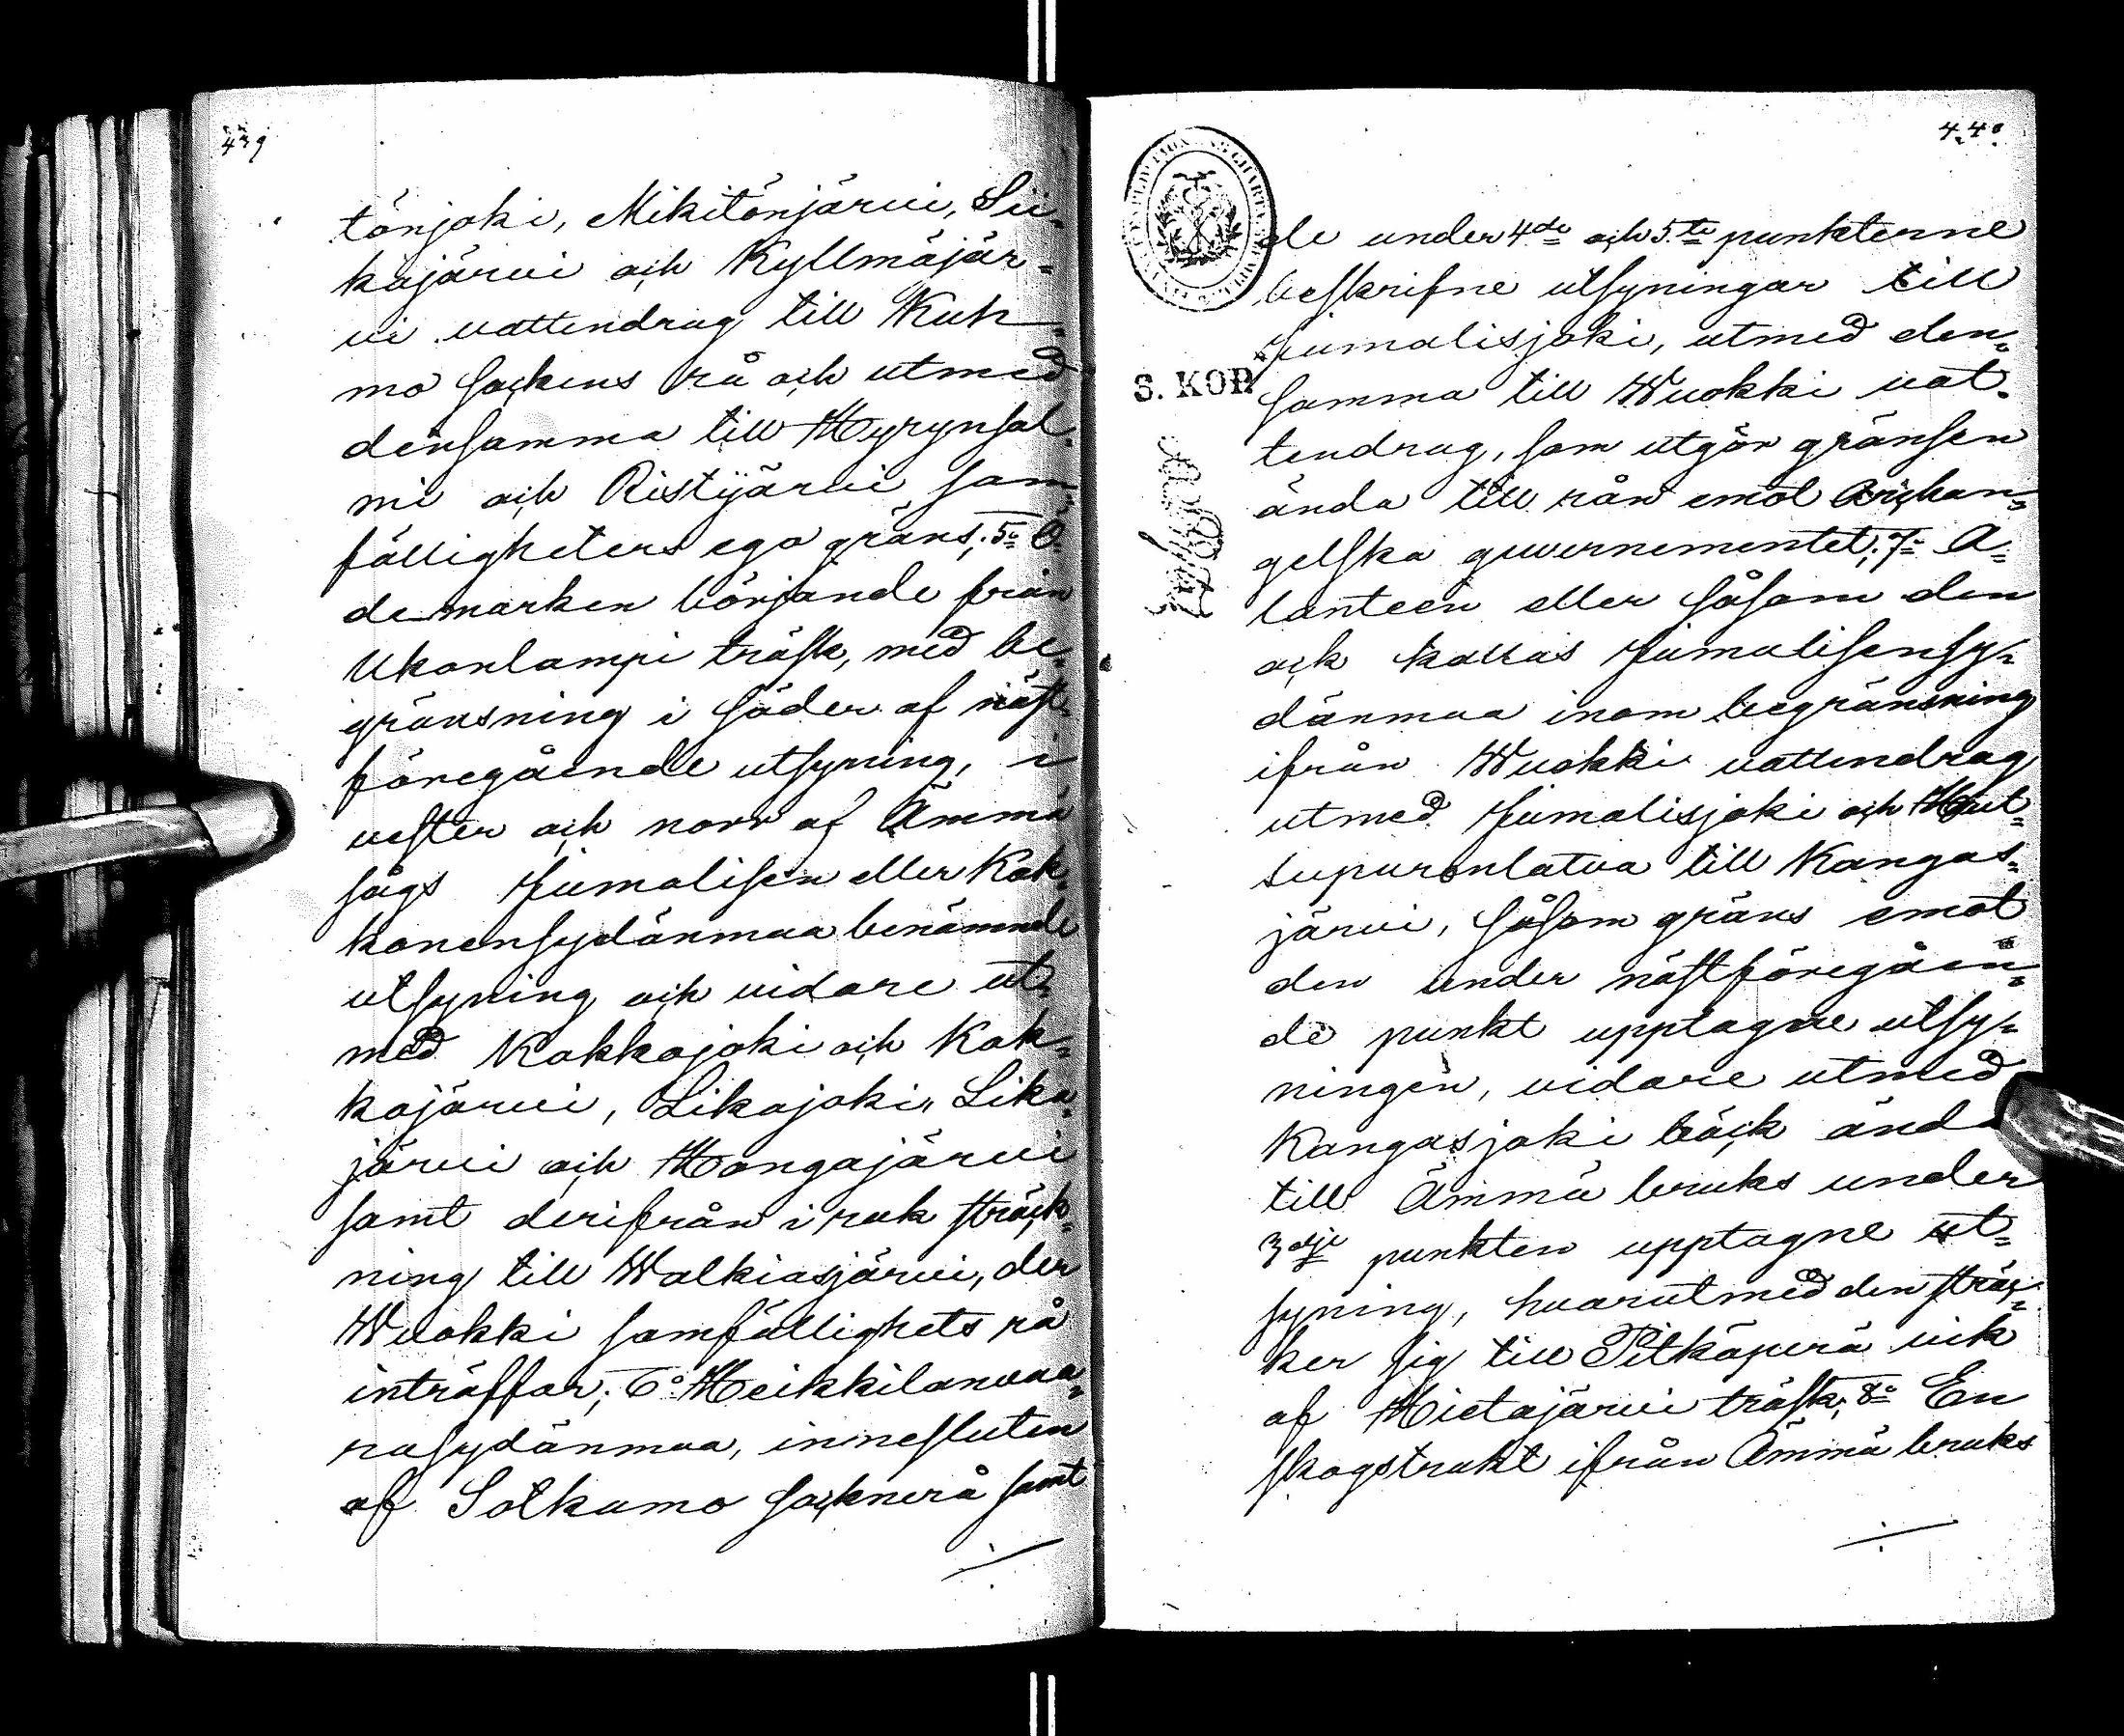 439
tönjoki, Mikitönjärvi, Sii-
kajärvi och Kyllmäjär-
vi vattendrag till Kuh-
mo sockens rå och utmed
densamma till Hyrynsal-
mi och Ristijärvi sam-
fälligheters ego gräns; 5:o Ö-
demarken börjande från
Ukonlampi träsk, med be-
gränsning i söder af näst-
föregående utsyning, i
vester och norr af Ämmä
sågs Jumalisen eller Kok-
konensydänmaa benämnde
utsyning och vidare ut-
med Kokkojoki och Kok-
kojärvi, Likajoki, Lika-
järvi och Hongajärvi
samt derifrån i rak sträck-
ning till Walkiasjärvi, der
Wuokki samfällighets rå
inträffar; 6:o Heikkilanvaa-
rasydänmaa, innesluten
af Sotkamo socknerå samt
./.
440
de under 4de och 5te punkterne
beskrifne utsyningar till
Jumalisjoki, utmed den-
S. KOP.
samma till Wuokki vat-
tendrag, som utgör gränsen
ända till rån emot Archan-
gelska guvernementet; 7:o A-
lanteen eller såsom den
ock kallas Jumalisensy-
dänmaa inom begränsning
ifrån Wuokki vattendrag
utmed Jumalisjoki och Haut-
supuronlatva till Kangas-
järvi, såsom gräns emot
den under nästföregåen-
de punkt upptagne utsy-
ningen, vidare utmed
Kangasjoki bäck ända
till Ämmä bruks under
3dje punkten upptagne ut-
syning, hvarutmed den sträc-
ker sig till Pitkäperä vik
af Hietajärvi träsk; 8:o En
skogstrakt ifrån Ämmä bruks
./.